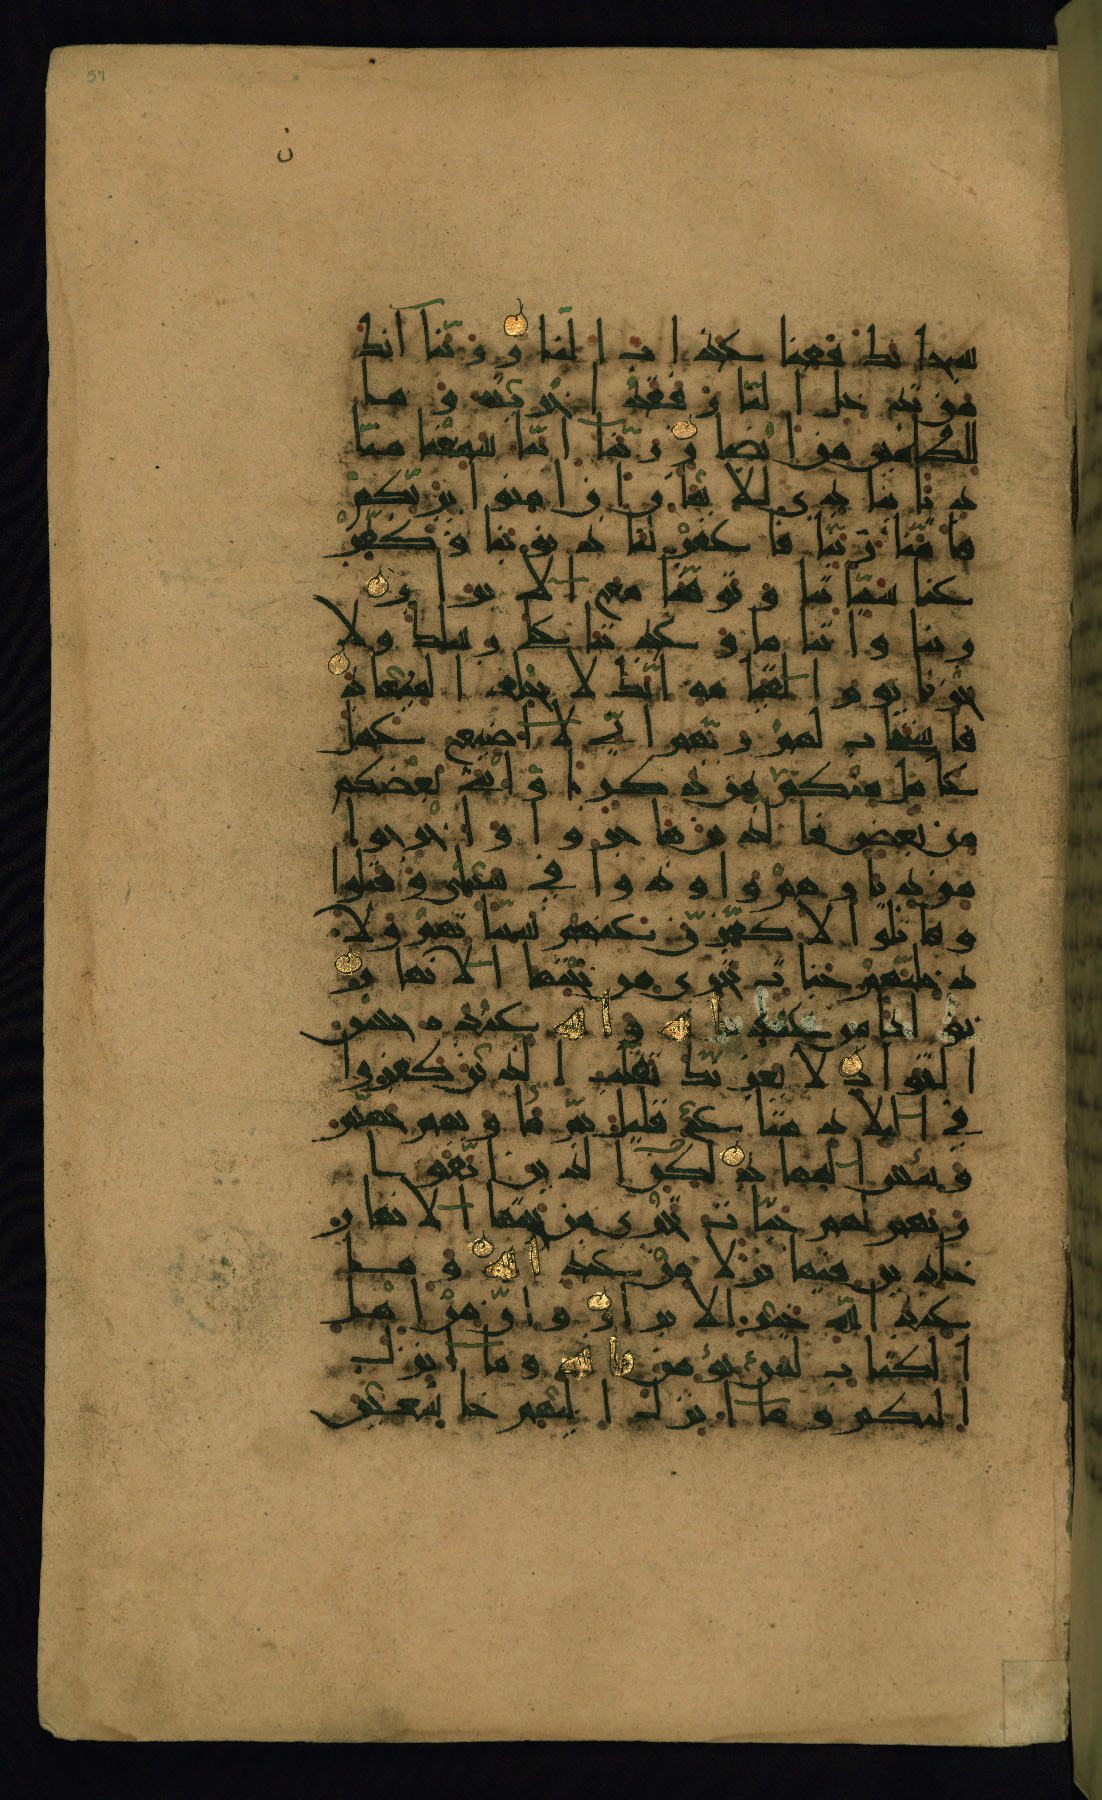 37
ن
سبحانك فقنا عذاب النار ربنا انك
من تدخل النار فقد اخزيته وما
للظلمين من انصار ربنا اننا سمعنا منا
ديا ينادي للايمان ان امنوا بربكم
فامنا ربنا فاغفر لنا ذنوبنا وكفر
عنا سياتنا وتوفنا مع الابرار
ربنا واتنا ما وعدتنا على رسلك ولا
تخزنا يوم القيمة انك لا تخلف الميعاد
فاستجاب لهم ربهم اني لا اضيع عمل
عامل منكم من ذكر او انثى بعضكم
من بعض فالذين هاجروا واخرجوا
من ديارهم واوذوا في سبيلي وقتلوا
وقاتلوا لاكفرن عنهم سياتهم ولا
دخلنهم جنات تجري من تحتها الانهار
ثوابا من عند الله والله عنده حسن
الثواب لا يغرنك تقلب الذين كفروا
في البلاد متاع قليل ثم ماويهم جهنم
وبئس المهاد لكن الذين اتقوا
ربهم لهم جنات تجري من تحتها الانهار
خالدين فيها نزلا من عند الله وما
عند الله خير للابرار وان من اهل
الكتاب لمن يؤمن بالله وما انزل
اليكم وما انزل اليهم خاشعين